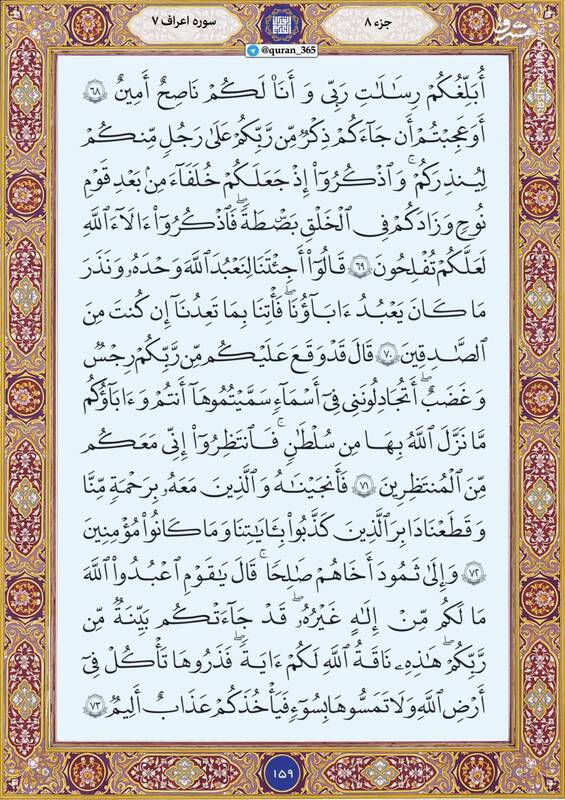 جزء ۸
سوره اعراف ۷
@quran_365
أُبَلِّغُكُمْ رِسَـٰلَـٰتِ رَبِّى وَ أَنَا۠ لَكُمْ نَاصِحٌ أَمِينٌ ﴿۶۸﴾
أَوَعَجِبْتُمْ أَن جَآءَكُمْ ذِكْرٌ مِّن رَّبِّكُمْ عَلَىٰ رَجُلٍ مِّنكُمْ
لِيُنذِرَكُمْ ۚ وَٱذْكُرُوٓا۟ إِذْ جَعَلَكُمْ خُلَفَآءَ مِنۢ بَعْدِ قَوْمِ
نُوحٍ وَزَادَكُمْ فِى ٱلْخَلْقِ بَصْۜطَةً ۖ فَٱذْكُرُوٓا۟ ءَالَآءَ ٱللَّهِ
لَعَلَّكُمْ تُفْلِحُونَ ﴿۶۹﴾ قَالُوٓا۟ أَجِئْتَنَا لِنَعْبُدَ ٱللَّهَ وَحْدَهُۥ وَنَذَرَ
مَا كَانَ يَعْبُدُ ءَابَآؤُنَا ۖ فَأْتِنَا بِمَا تَعِدُنَآ إِن كُنتَ مِنَ
ٱلصَّـٰدِقِينَ ﴿۷۰﴾ قَالَ قَدْ وَقَعَ عَلَيْكُم مِّن رَّبِّكُمْ رِجْسٌ
وَ غَضَبٌ ۖ أَتُجَـٰدِلُونَنِى فِىٓ أَسْمَآءٍ سَمَّيْتُمُوهَآ أَنتُمْ وَ ءَابَآؤُكُم
مَّا نَزَّلَ ٱللَّهُ بِهَا مِن سُلْطَـٰنٍ ۚ فَٱنتَظِرُوٓا۟ إِنِّى مَعَكُم
مِّنَ ٱلْمُنتَظِرِينَ ﴿۷۱﴾ فَأَنجَيْنَـٰهُ وَ ٱلَّذِينَ مَعَهُۥ بِرَحْمَةٍ مِّنَّا
وَ قَطَعْنَا دَابِرَ ٱلَّذِينَ كَذَّبُوا۟ بِـَٔايَـٰتِنَا وَ مَا كَانُوا۟ مُؤْمِنِينَ
﴿۷۲﴾ وَإِلَىٰ ثَمُودَ أَخَاهُمْ صَـٰلِحًا ۗ قَالَ يَـٰقَوْمِ ٱعْبُدُوا۟ ٱللَّهَ
مَا لَكُم مِّنْ إِلَـٰهٍ غَيْرُهُۥ ۖ قَدْ جَآءَتْكُم بَيِّنَةٌ مِّن
رَّبِّكُمْ ۖ هَـٰذِهِۦ نَاقَةُ ٱللَّهِ لَكُمْ ءَايَةً ۖ فَذَرُوهَا تَأْكُلْ فِىٓ
أَرْضِ ٱللَّهِ وَلَا تَمَسُّوهَا بِسُوٓءٍ فَيَأْخُذَكُمْ عَذَابٌ أَلِيمٌ ﴿۷۳﴾
۱۵۹